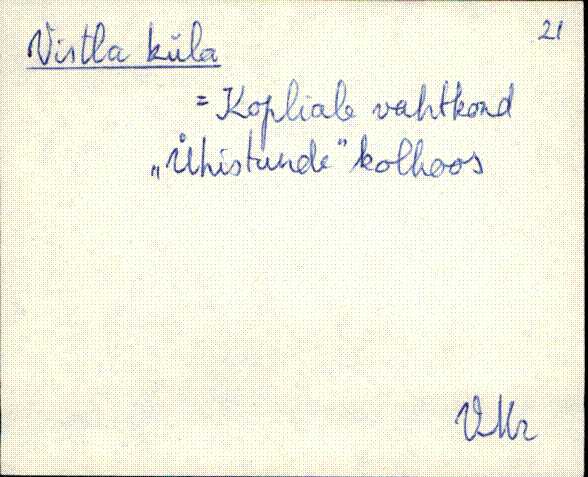 21
Vistla küla
= Kopliale vahtkond
„Ühistunde" kolhoos
VMr